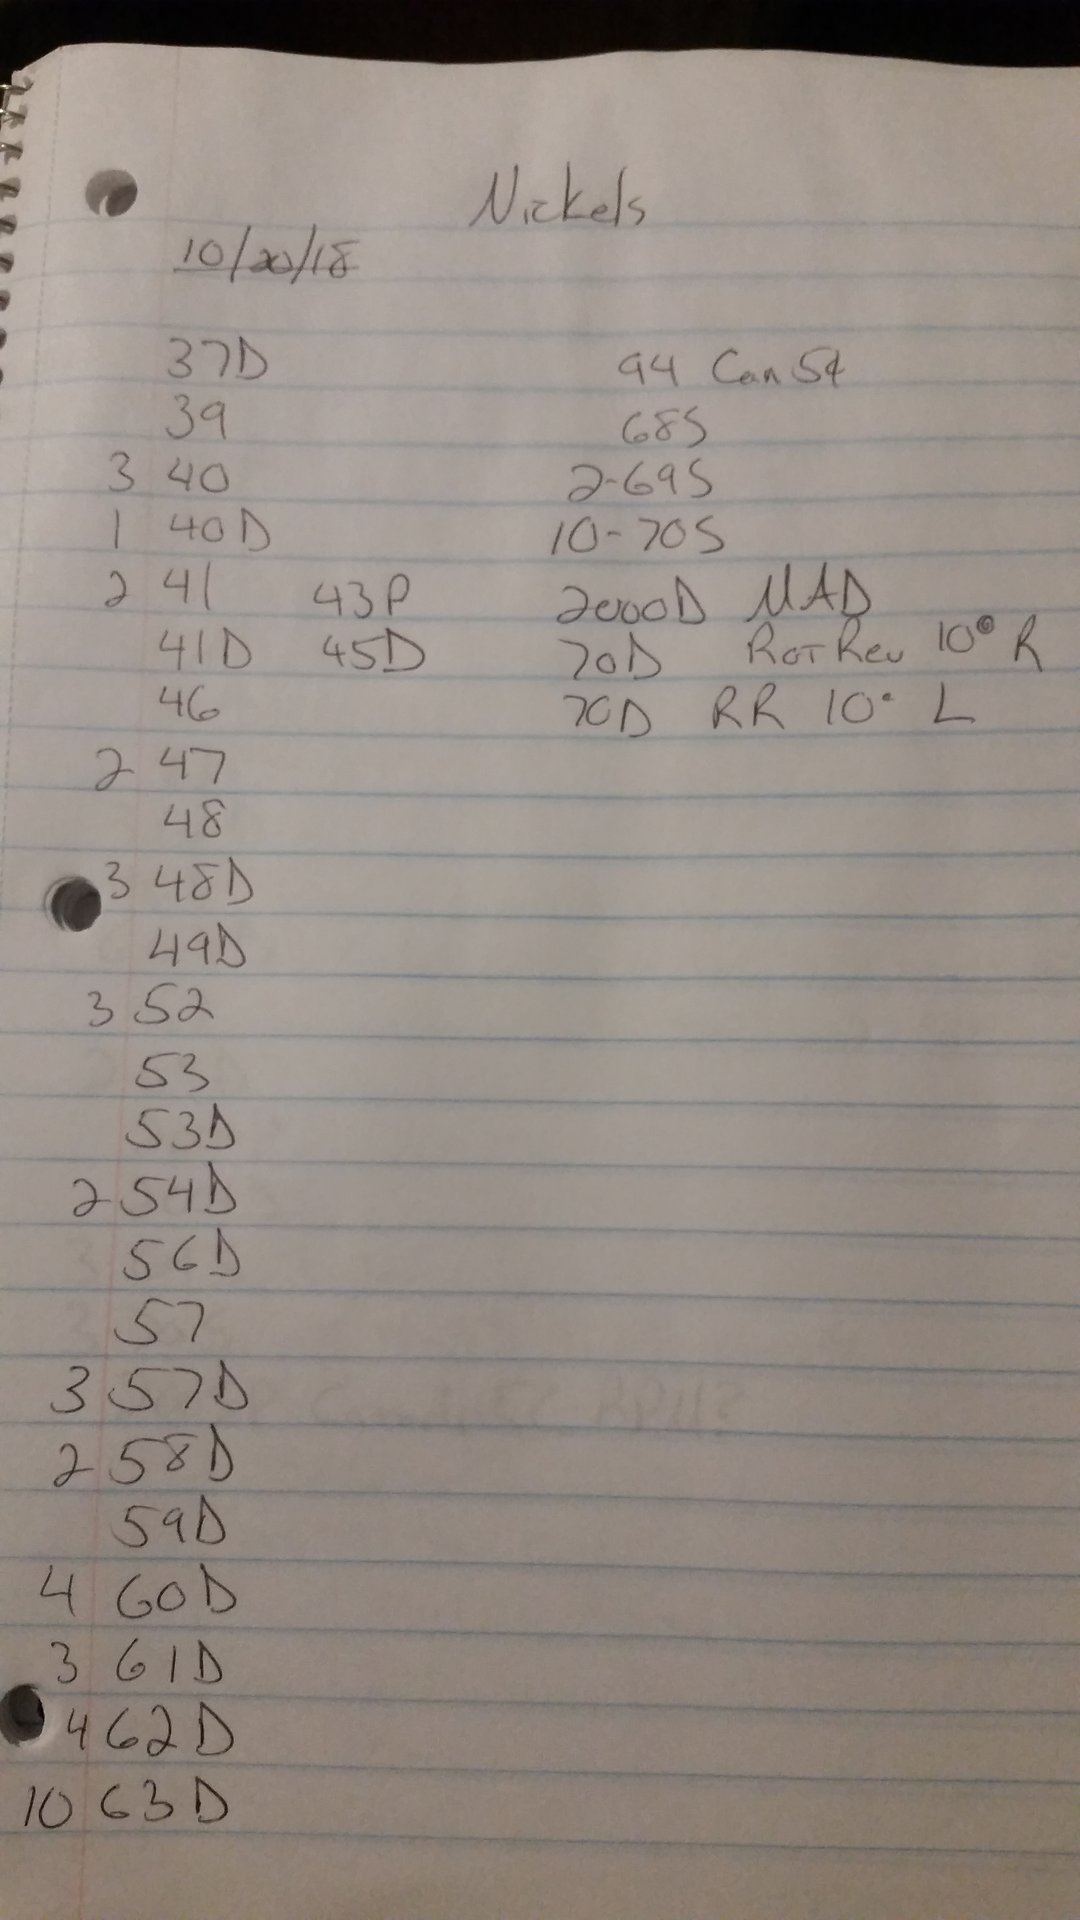 Nickels
10/20/18
37D 94 Can 5¢
39 68S
3 40 2-69S
1 40D 10-70S
2 41 43P 2000D MAD
41D 45D 70D Rot Rev 10° R
46 70D RR 10° L
2 47
48
3 48D
49D
3 52
53
53D
2 54D
56D
57
3 57D
2 58D
59D
4 60D
3 61D
4 62D
10 63D